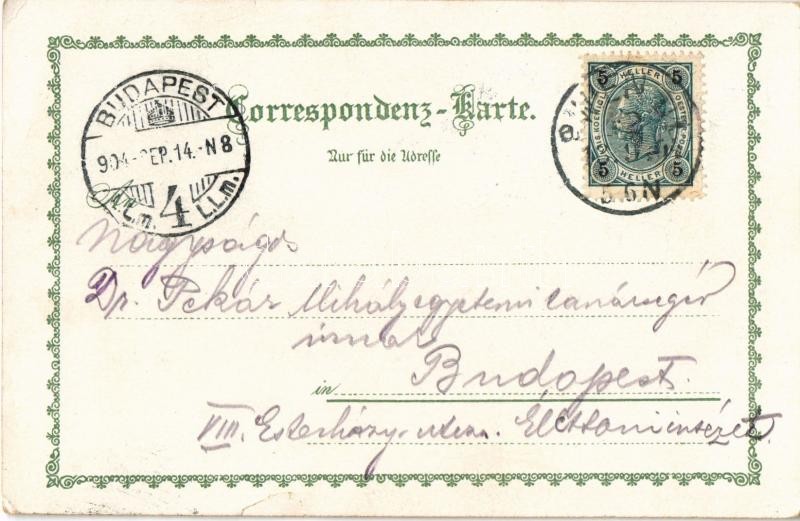 BUDAPEST
904 SEP. 14. N 8
4
Correspondenz-Karte.
Nur für die Adresse
5 HELLER 5
5 HELLER 5
5 N
Nagyságos
Dr. Pekár Mihály egyetemi tanársegéd
úrnak
in Budapest.
VIII. Esterházy-utcza. Élettani intézet.